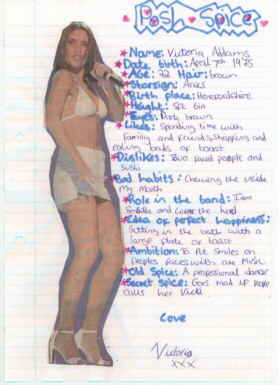 Posh Spice
Name: Victoria Addams
Date birth: April 7th 1975
Age: 22 Hair: brown
Starsign: Aries
Birth place: Herefordshire
Height: 5ft 6in
Eyes: Dark brown
Likes: Spending time with
family and friends, shopping and
eating loads of toast
Dislikes: Two faced people and
sushi
Bad habits: Chewing the inside
My Mouth
Role in the band: I am
the
Idea of perfect happiness:
Sitting in the bath with a
large plate of toast
Ambition: To Put Smiles on
Peoples faces with our Music
Old Spice: A professional dancer
Secret Spice: Goes mad
calls her Vicki
Love
Victoria
xxx